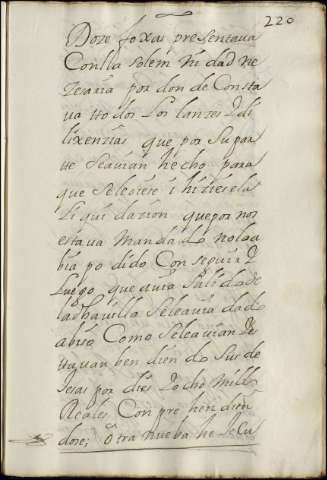 220
Doze foxas presentava
Con lla solemnidad ne
zesaria por donde Consta
va todos Los lanzes Y di
lixenzias que por su par
te se avian hecho para
que se leiese i hiziese la
Liquidazion que por nos
estava mandado no lo a
bia podido Conseguir Y
Luego que avia salido de
la dha villa se le avia dado
abiso Como se le avian
van bendiendo sus de
esas por dies Y ocho Mill
Reales Con prehendien
dose; otra nueba he